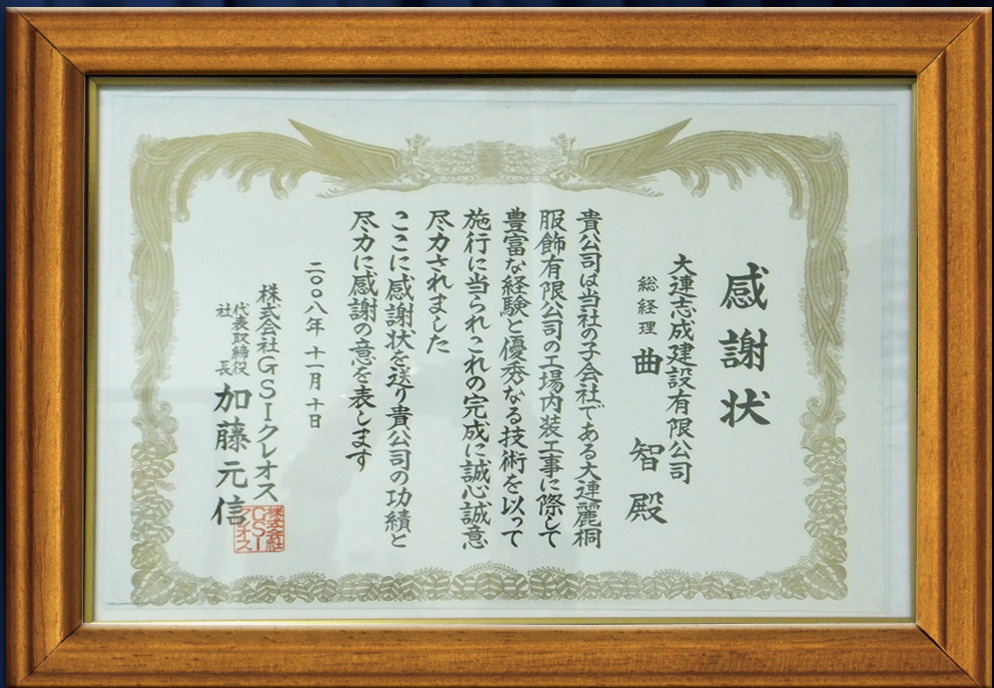 感謝状
大連志成建設有限公司
総経理 曲 智 殿
貴公司は当社の子会社である大連麗桐
服飾有限公司の工場内装工事に際して
豊富な経験と優秀なる技術を以って
施行に当られこれの完成に誠心誠意
尽力されました
ここに感謝状を送り貴公司の功績と
尽力に感謝の意を表します
二〇〇八年 十一月 十日
株式会社GSIクレオス
代表取締役
社長
加藤元信
株式会社
GSI
クレオス